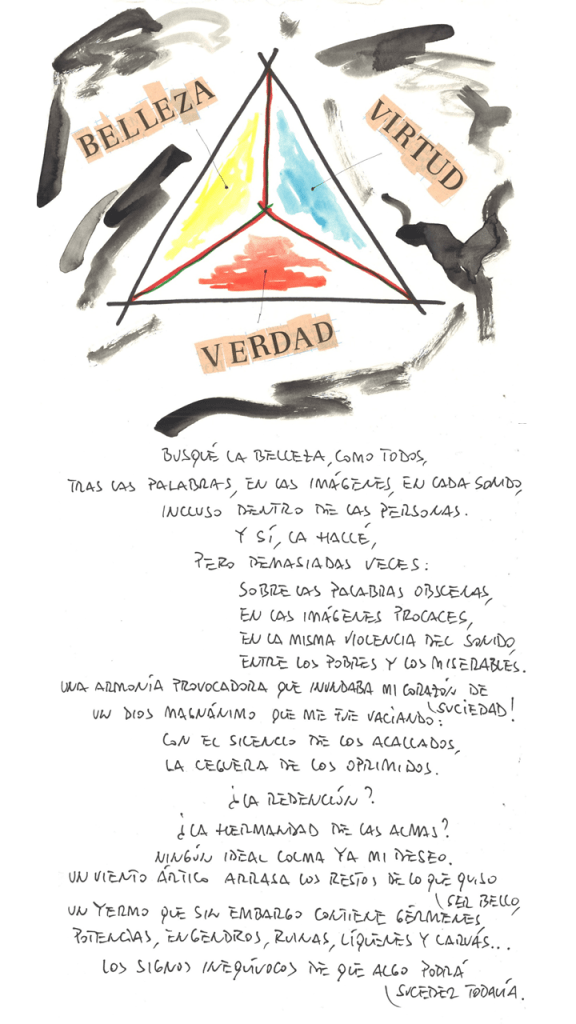 BELLEZA
VIRTUD
VERDAD
BUSQUÉ LA BELLEZA, COMO TODOS,
TRAS LAS PALABRAS, EN LAS IMÁGENES, EN CADA SONIDO,
INCLUSO DENTRO DE LAS PERSONAS.
Y SÍ, LA HALLÉ,
PERO DEMASIADAS VECES:
SOBRE LAS PALABRAS OBSCENAS,
EN LAS IMÁGENES PROCACES,
EN LA MISMA VIOLENCIA DEL SONIDO,
ENTRE LOS POBRES Y LOS MISERABLES.
UNA ARMONÍA PROVOCADORA QUE INUNDABA MI CORAZÓN DE
SUCIEDAD!
UN DIOS MAGNÁNIMO QUE ME FUE VACIANDO:
CON EL SILENCIO DE LOS ACALLADOS,
LA CEGUERA DE LOS OPRIMIDOS.
¿LA REDENCIÓN?
¿LA HERMANDAD DE LAS ALMAS?
NINGÚN IDEAL COLMA YA MI DESEO.
UN VIENTO ÁRTICO ARRASA LOS RESTOS DE LO QUE QUISO
SER BELLO,
UN YERMO QUE SIN EMBARGO CONTIENE GÉRMENES
POTENCIAS, ENGENDROS, RUINAS, LÍQUENES Y LARVAS...
LOS SIGNOS INEQUÍVOCOS DE QUE ALGO PODRÁ
SUCEDER TODAVÍA.